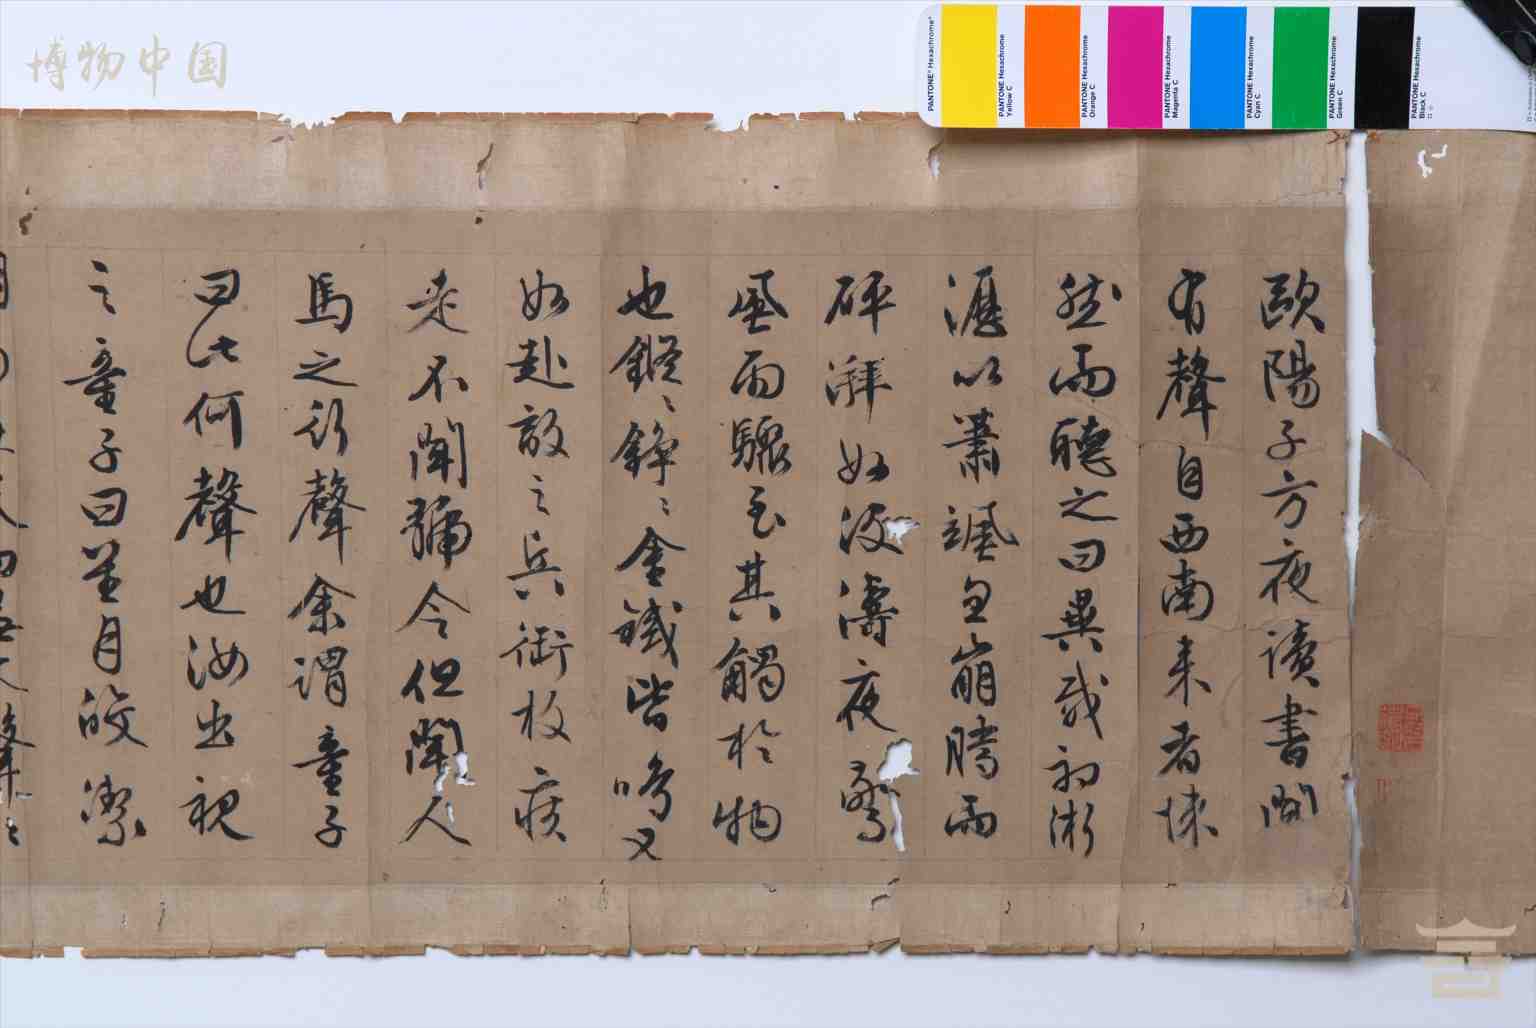 博物中国
PANTONE® Hexachrome
PANTONE Hexachrome Yellow C
PANTONE Hexachrome Orange C
PANTONE Hexachrome Magenta C
PANTONE Hexachrome Cyan C
PANTONE Hexachrome Green C
PANTONE Hexachrome Black C
歐陽子方夜讀書聞
有聲自西南来者悚
然而聽之曰異哉初淅
瀝以蕭颯忽崩騰而
砰湃如波濤夜驚
風雨驟至其觸於物
也鏦〻錚〻金鐵皆鳴又
如赴敵之兵銜枚疾
走不聞號令但聞人
馬之行聲余謂童子
曰此何聲也汝出視
之童子曰星月皎潔